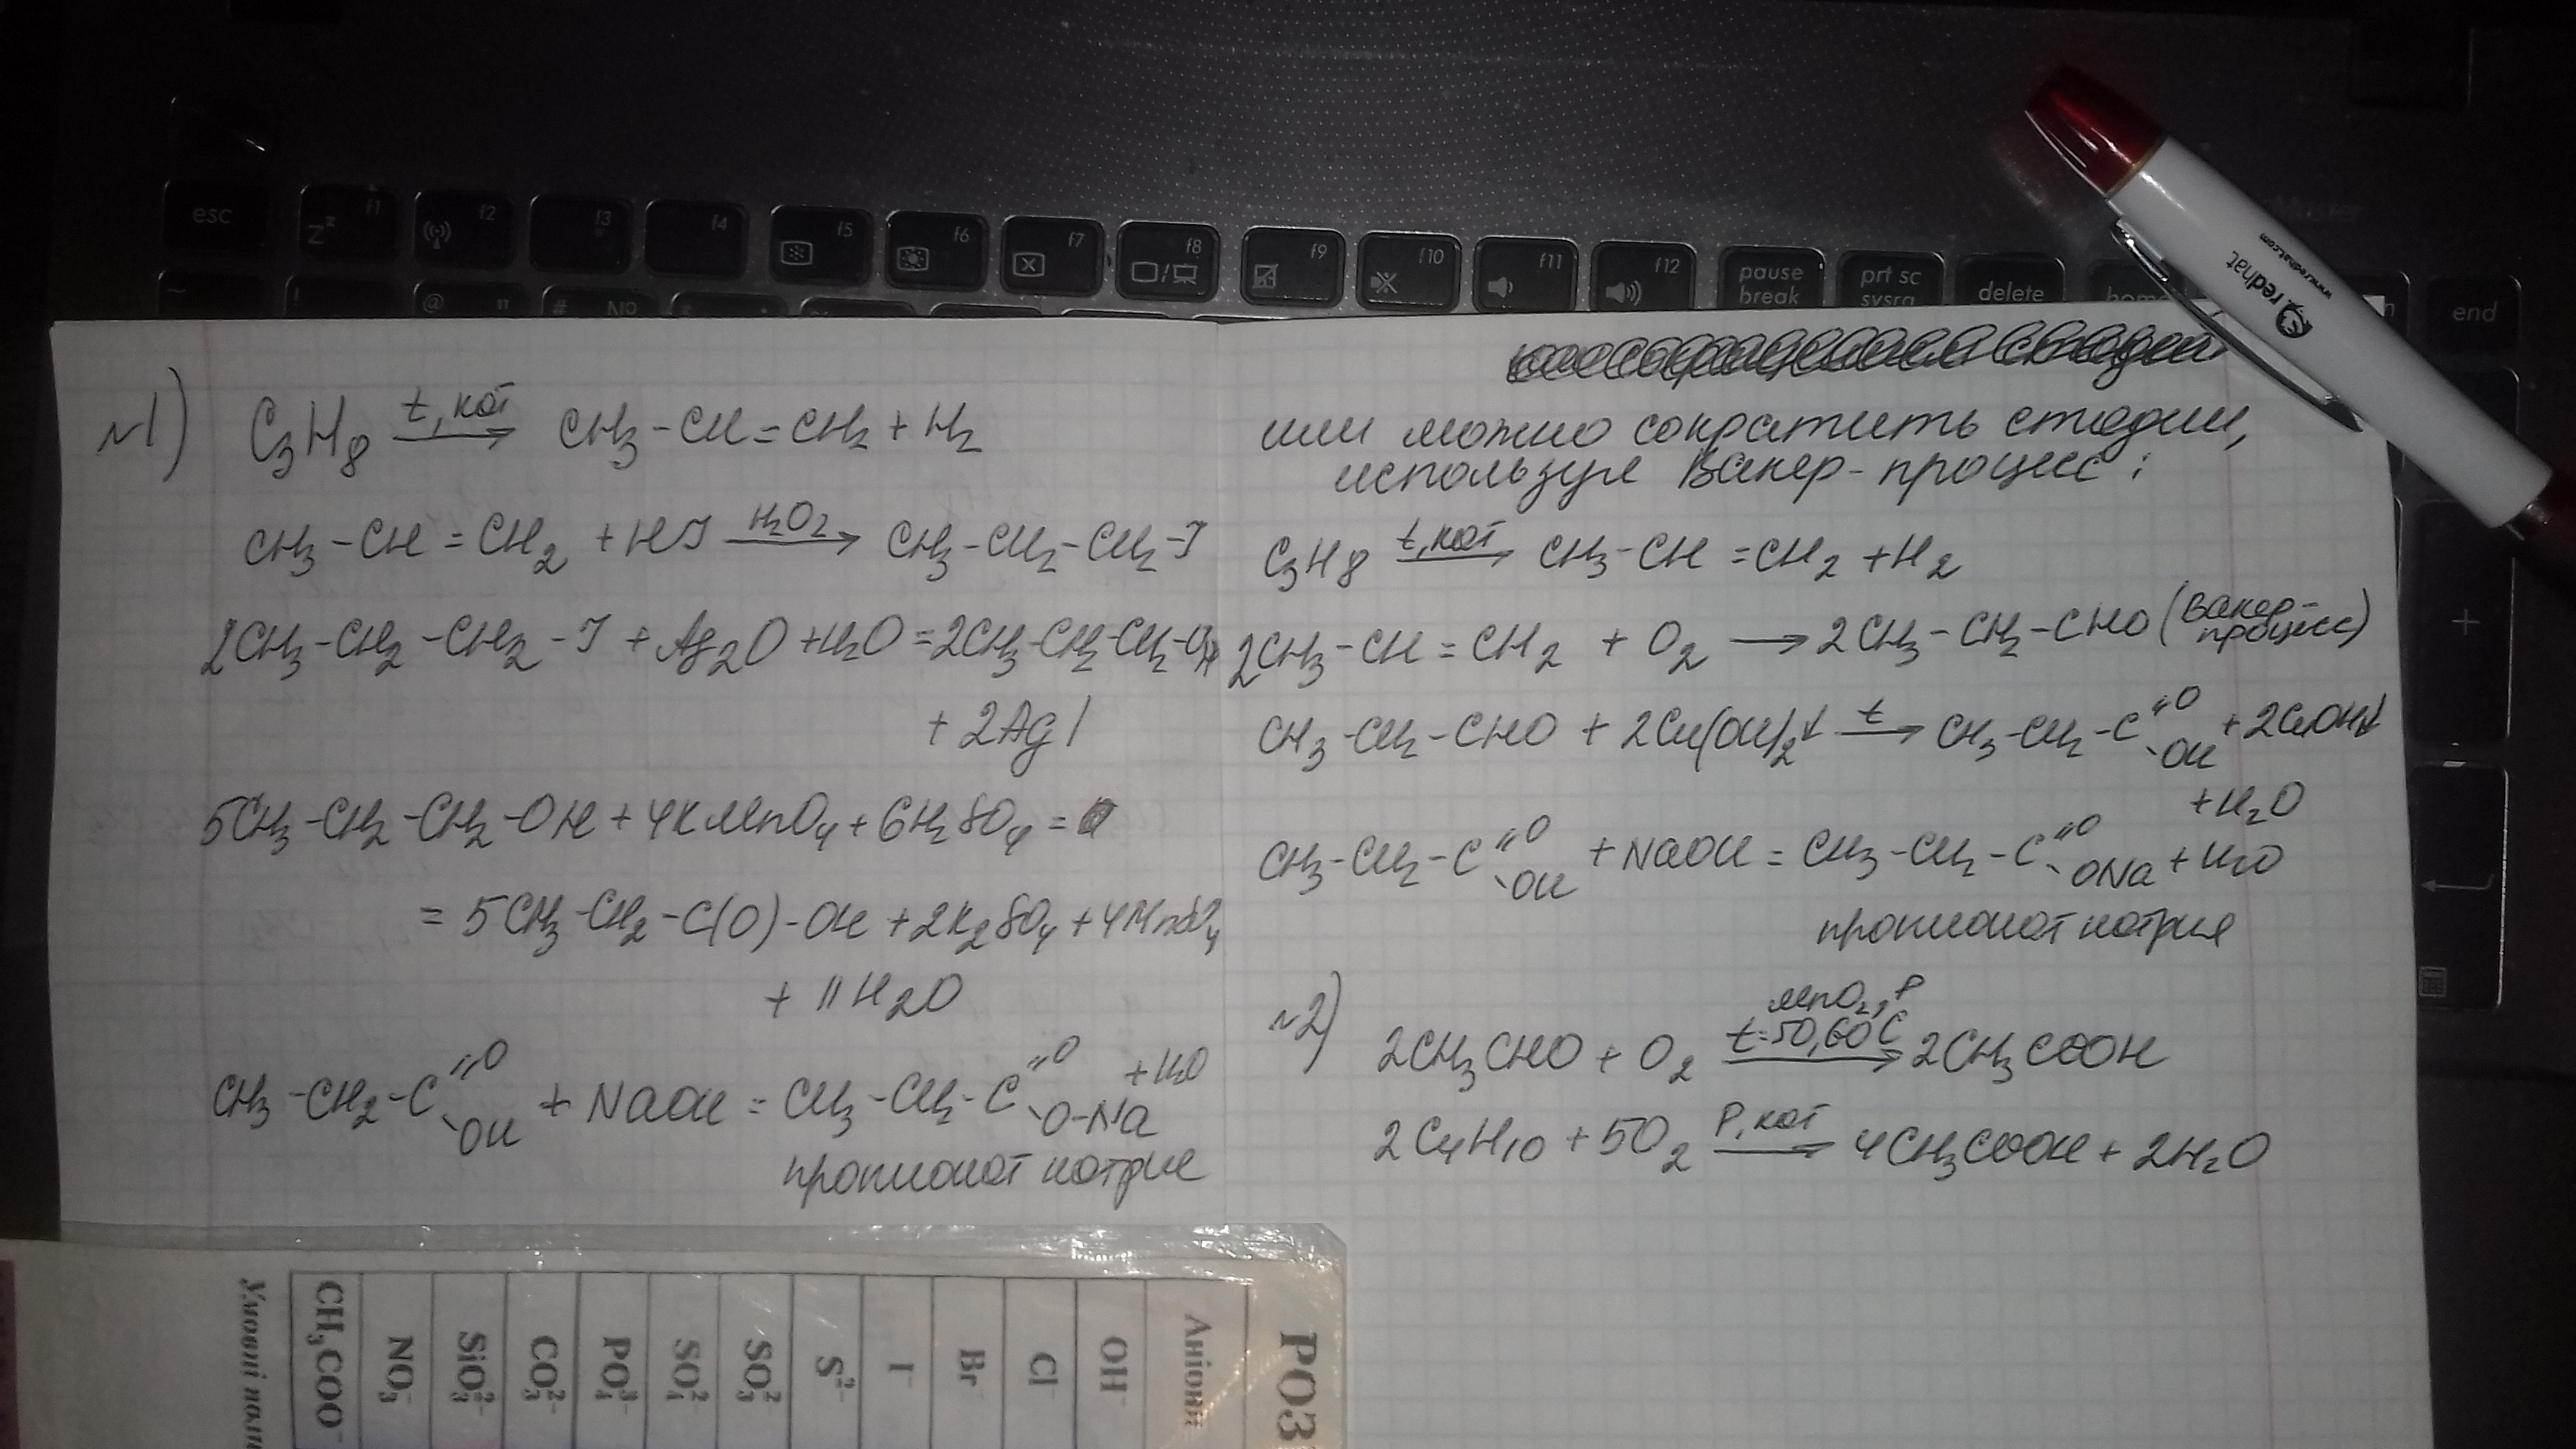 esc
f1
f2
f3
f4
f5
f6
f7
f8
f9
f10
f11
f12
pause break
prt sc sysrq
delete
home
end
redhat
www.redhat.com
№1) C₃H₈ —t, кат→ CH₃-CH=CH₂ + H₂
CH₃-CH=CH₂ + HJ —H₂O₂→ CH₃-CH₂-CH₂-J
2CH₃-CH₂-CH₂-J + Ag₂O + H₂O = 2CH₃-CH₂-CH₂-OH
+ 2AgI
5CH₃-CH₂-CH₂-OH + 4KMnO₄ + 6H₂SO₄ =
= 5CH₃-CH₂-C(O)-OH + 2K₂SO₄ + 4MnSO₄
+ 11H₂O
CH₃-CH₂-C(=O)-OH + NaOH = CH₃-CH₂-C(=O)-O-Na + H₂O
пропионат натрия
или можно сократить стадии,
используя Вакер-процесс:
C₃H₈ —t, кат→ CH₃-CH=CH₂ + H₂
2CH₃-CH=CH₂ + O₂ → 2CH₃-CH₂-CHO (Вакер-процесс)
CH₃-CH₂-CHO + 2Cu(OH)₂↓ —t→ CH₃-CH₂-C(=O)-OH + 2CuOH↓
+ H₂O
CH₃-CH₂-C(=O)-OH + NaOH = CH₃-CH₂-C(=O)-ONa + H₂O
пропионат натрия
№2) 2CH₃CHO + O₂ —MnO₂, P t=50,60°C→ 2CH₃COOH
2C₄H₁₀ + 5O₂ —P, кат→ 4CH₃COOH + 2H₂O
РОЗ
Аніони
OH⁻
Cl⁻
Br⁻
I⁻
S²⁻
SO₃²⁻
SO₄²⁻
PO₄³⁻
CO₃²⁻
SiO₃²⁻
NO₃⁻
CH₃COO⁻
Умовні